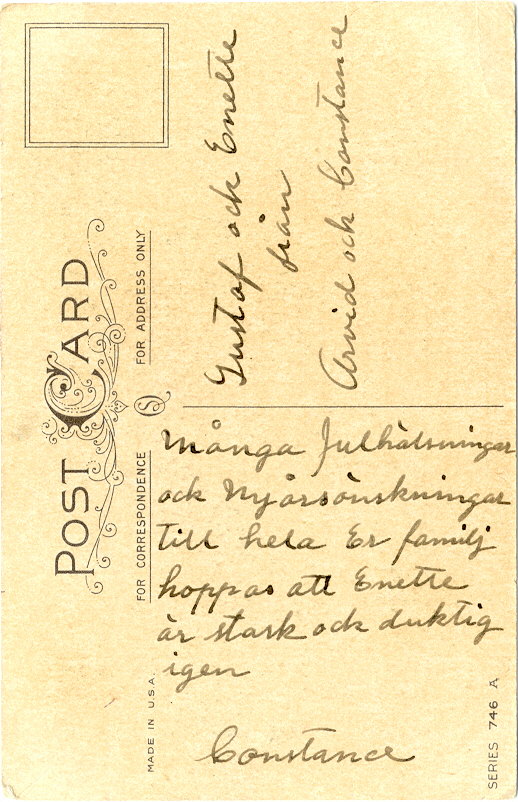 POST CARD
FOR CORRESPONDENCE
FOR ADDRESS ONLY
Många Julhälsningar
och Nyårsönskningar
till hela Er familj
hoppas att Enette
är stark och duktig
igen
Constance
Gustaf och Enette
från
Arvid och Constance
MADE IN U.S.A.
SERIES 746 A